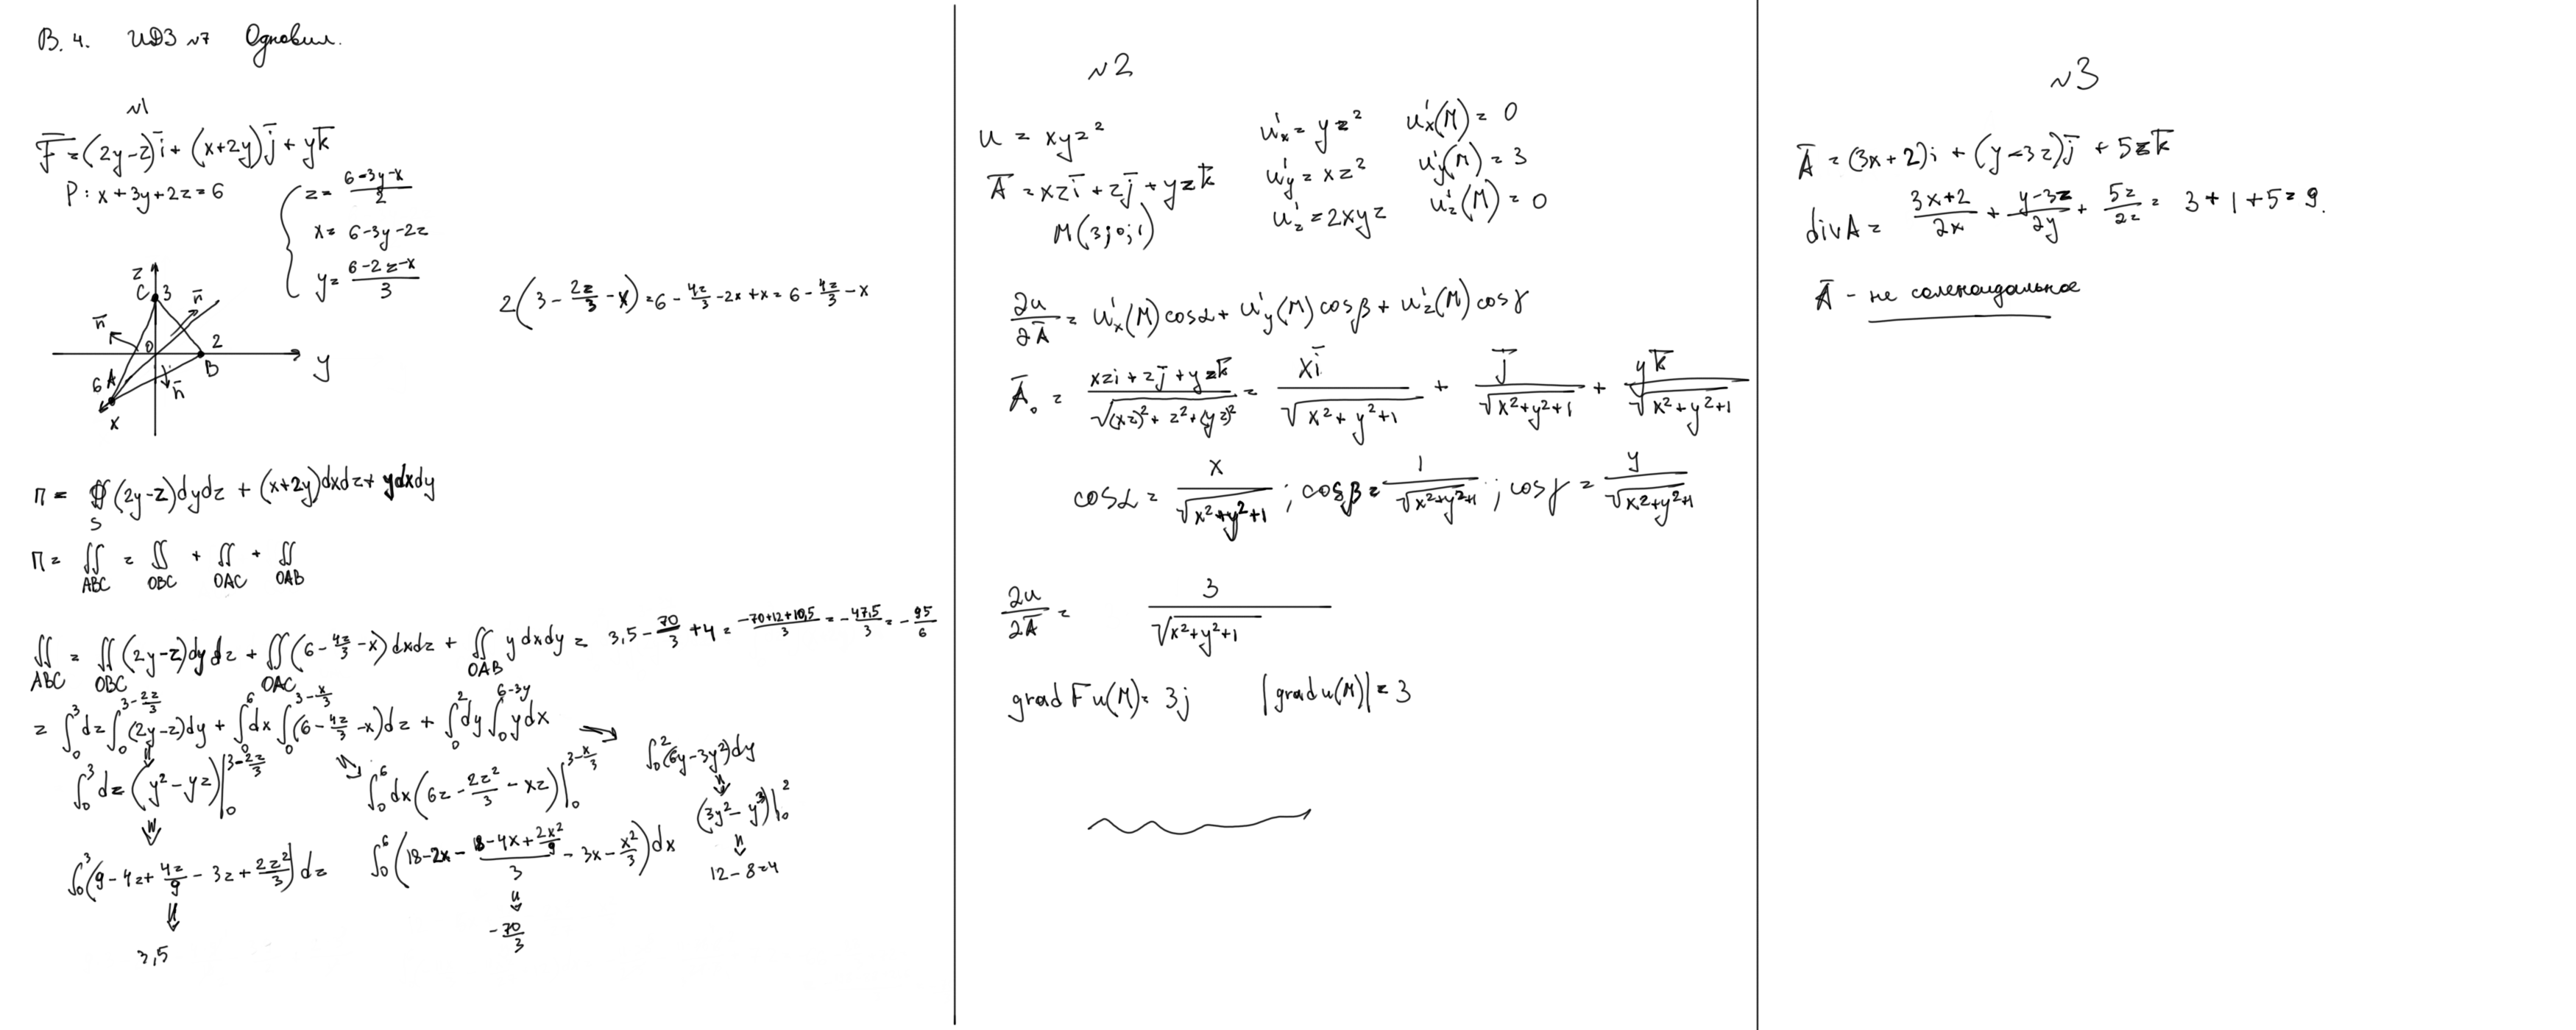 В. 4. ИДЗ №7
№1
F̅ = (2y-z)i̅ + (x+2y)j̅ + yk̅
P: x+3y+2z=6
z = (6-3y-x)/2
x = 6-3y-2z
y = (6-2z-x)/3
2(3 - 2z/3 - x) = 6 - 4z/3 - 2x + x = 6 - 4z/3 - x
z
C 3
n̅
n̅
0
2
B
y
6 A
n̅
x
П = ∯_S (2y-z)dydz + (x+2y)dxdz + ydxdy
П = ∬_ABC = ∬_OBC + ∬_OAC + ∬_OAB
∬_ABC = ∬_OBC (2y-z)dydz + ∬_OAC (6 - 4z/3 - x)dxdz + ∬_OAB ydxdy = 3,5 - 70/3 + 4 = (-70+12+10,5)/3 = -47,5/3 = -95/6
= ∫_0^3 dz ∫_0^{3-2z/3} (2y-z)dy + ∫_0^6 dx ∫_0^{3-x/3} (6 - 4z/3 - x)dz + ∫_0^2 dy ∫_0^{6-3y} ydx
∫_0^3 dz (y² - yz)|_0^{3-2z/3}
∫_0^6 dx (6z - 2z²/3 - xz)|_0^{3-x/3}
∫_0^2 (6y-3y²)dy
(3y² - y³)|_0^2
12-8=4
∫_0^3 (9 - 4z + 4z/9 - 3z + 2z²/3) dz
3,5
∫_0^6 (18-2x - (8-4x+2x²/9)/3 - 3x - x²/3) dx
-70/3
№2
u = xyz²
A̅ = xzi̅ + zj̅ + yzk̅
M(3;0;1)
u'x = yz² u'x(M) = 0
u'y = xz² u'y(M) = 3
u'z = 2xyz u'z(M) = 0
∂u/∂A̅ = u'x(M)cosα + u'y(M)cosβ + u'z(M)cosγ
A̅₀ = (xzi + zj̅ + yzk̅)/√((xz)²+z²+(yz)²) = xi̅/√(x²+y²+1) + j̅/√(x²+y²+1) + yk̅/√(x²+y²+1)
cosα = x/√(x²+y²+1) ; cosβ = 1/√(x²+y²+1) ; cosγ = y/√(x²+y²+1)
∂u/∂A̅ = 3/√(x²+y²+1)
grad F u(M) = 3j |grad u(M)| = 3
№3
A̅ = (3x+2)i + (y-3z)j̅ + 5zk̅
divA = (3x+2)/∂x + (y-3z)/∂y + 5z/∂z = 3+1+5=9.
A̅ - не соленоидальное